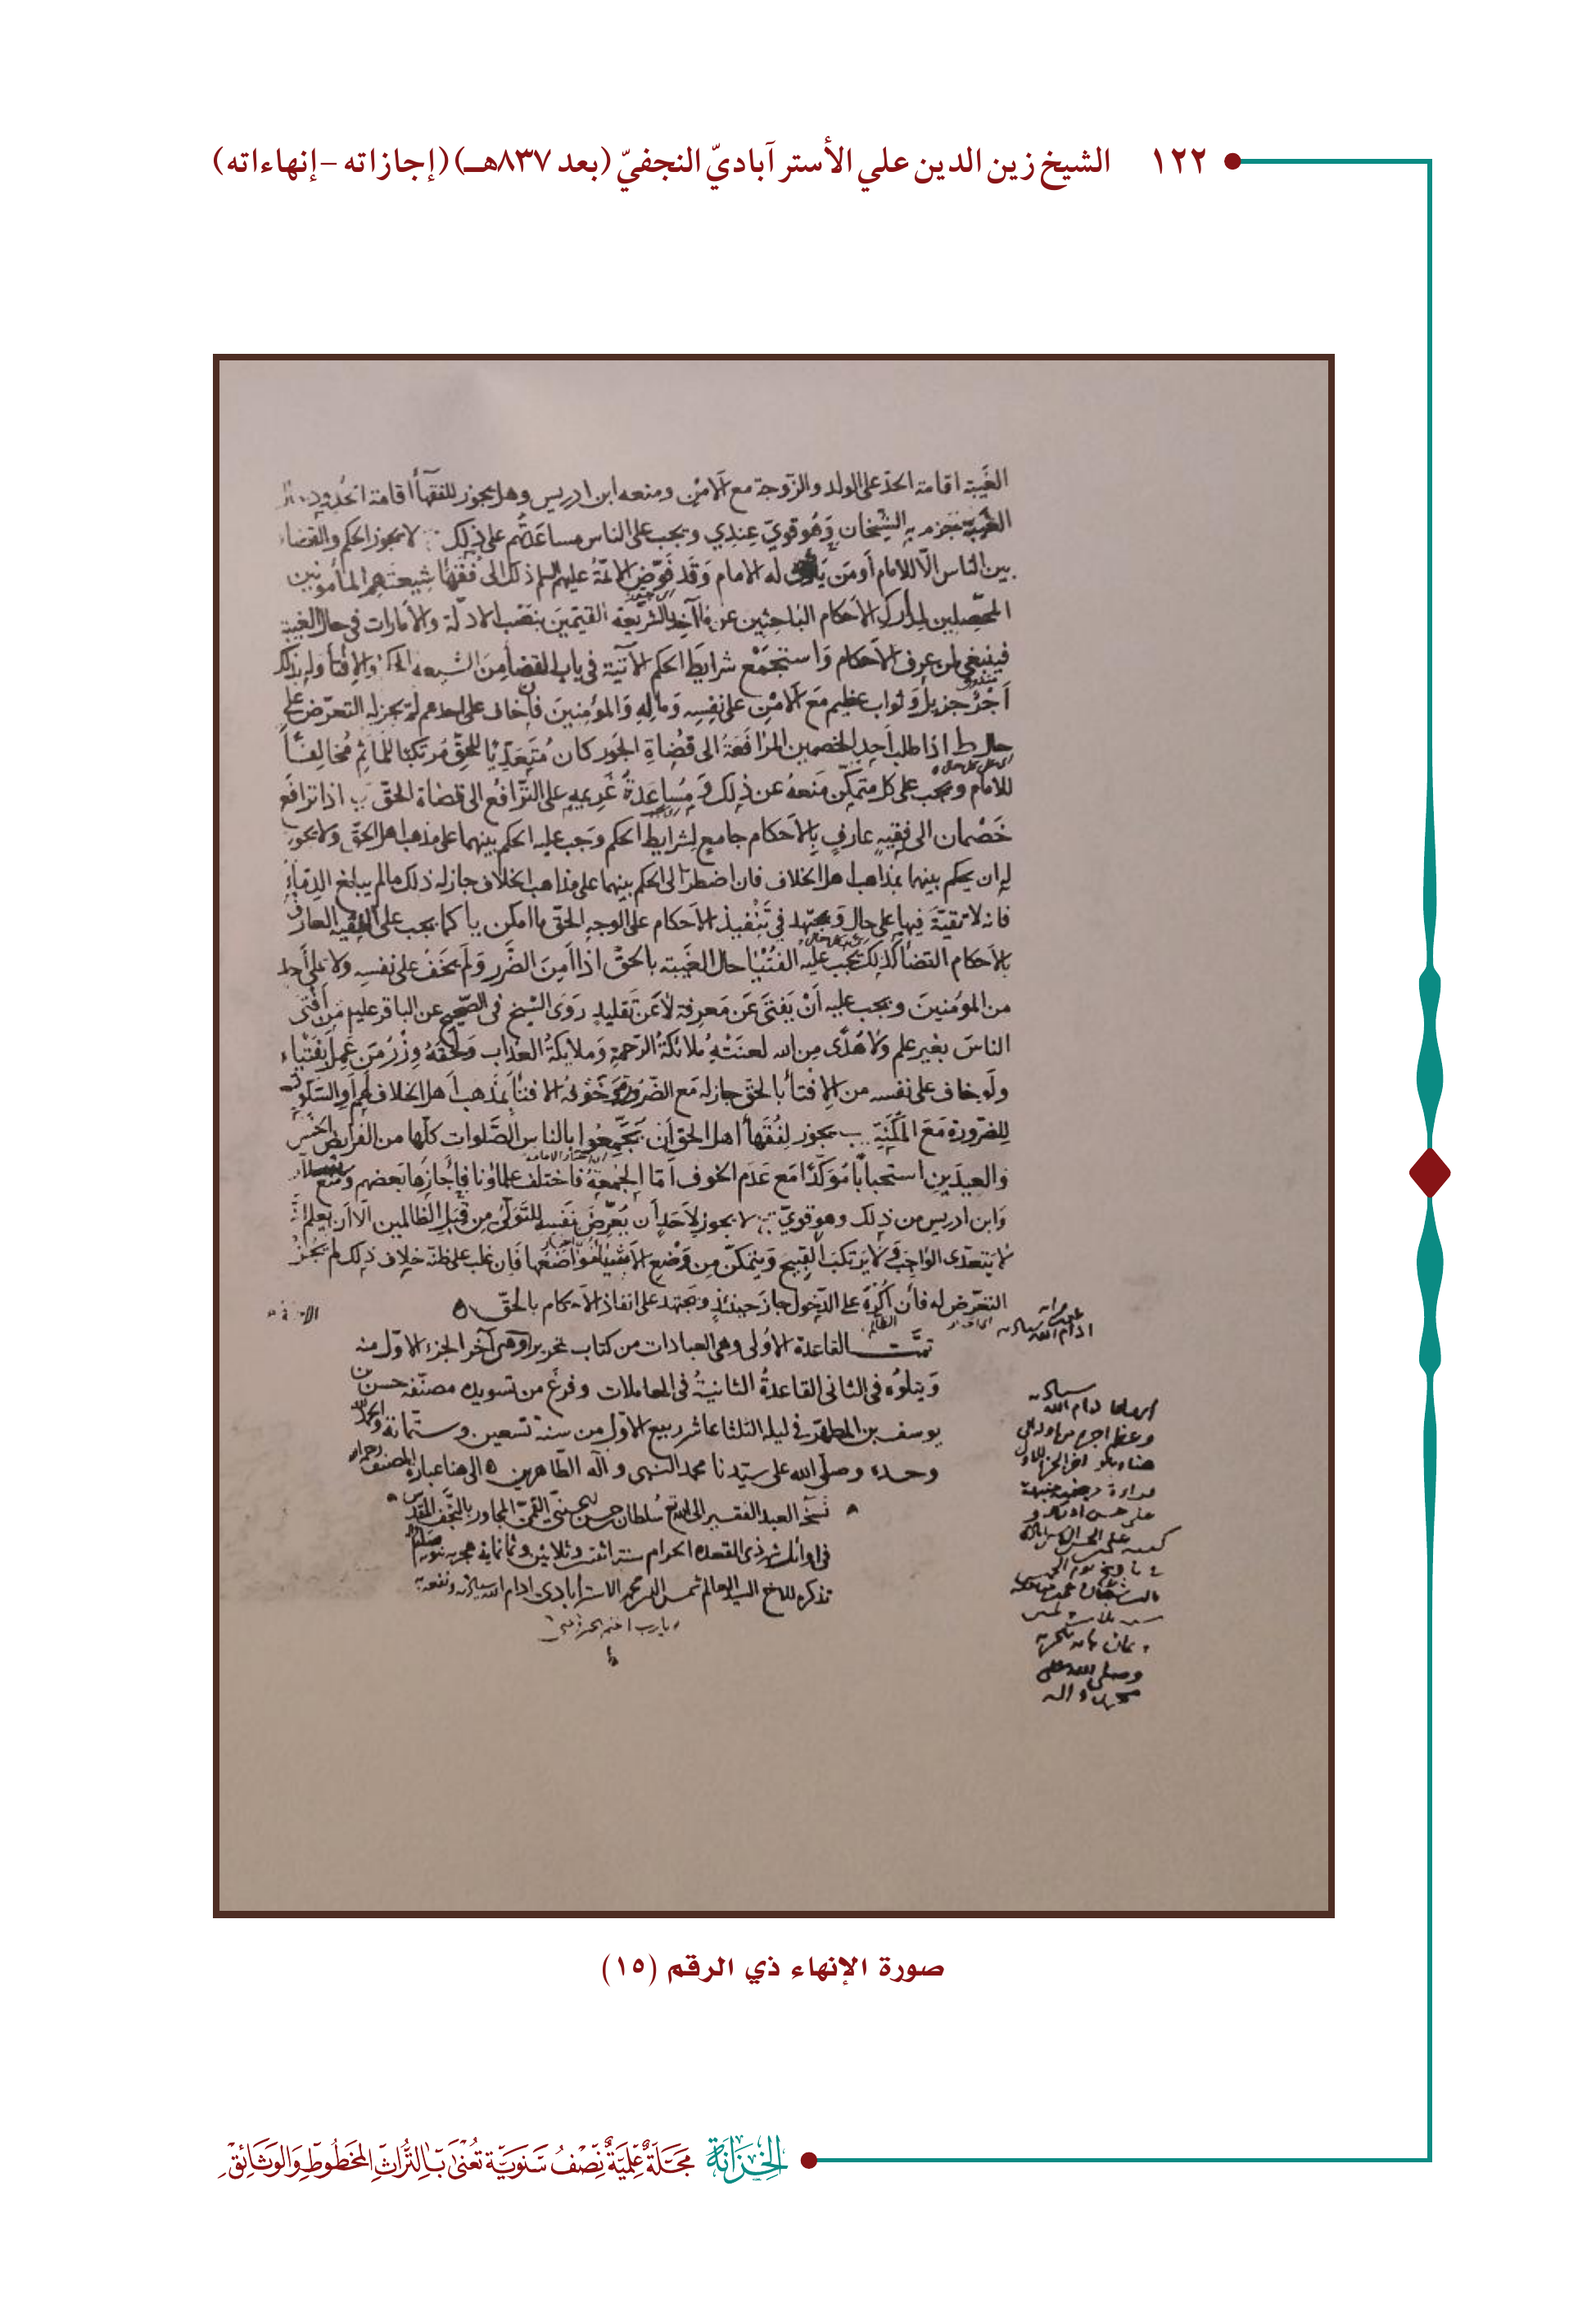 ١٢٢ الشيخ زين الدين علي الأسترآباديّ النجفيّ (بعد ٨٣٧هـ) (إجازاته – إنهاءاته)
الغَيبة اقامة الحدّ على الولد والزّوجة مع الامن ومنعه ابن ادريس وهل يجوز للفقهاء اقامة الحدود
الغيبة جزم به الشيخان وَهُو قويّ عِندي ويجب على الناس مساعَدتُهم على ذلك لا يجوز الحكم والقضاء
بين الناس الّا للامام أو مَن له الامام وَقَد فَوّض الائمّةُ عليهم السلم ذلك الى فُقَهاء شِيعتهم المأمونين
المحصّلين لمدارك الأحكام الباحثين عن مآخذ الشريعة القيّمين بنَصْب الادلّة والأمارات في حال الغيبة
فينبغي لمن عرف الاحكام وَاستجمَع شرايط الحكم الآتية في باب القضاء مِنَ الشيعة الحكم والإفتاء وله بذلك
أجْرٌ جزيل وَثواب عظيم مَع الامْن على نفسِه وَمالِهِ وَالمؤمنينَ فإن خاف على احدهم لم يجز له التعرّض على
حال ط اذا طلب أحد الخصمين المرافَعَة الى قُضاةِ الجَور كان مُتَعدّيًا للحقّ مُرتكبًا للمَاثم مُخالفًا
للامام ويجب على كل متمكّن مَنعهُ عن ذلك وَ مُساعَدةُ غَريمهِ على التّرافُع الى قضاة الحقّ ي اذا ترافع
خَصْمان الى فقيهٍ عارفٍ بالأحكام جامعٍ لشرايط الحكم وَجب عليه الحكم بينهما على مذهب اهل الحقّ وَلا يجوز
له ان يحكم بينهما بمذاهب اهل الخلاف فان اضطرّ الى الحكم بينهما على مذاهب الخلاف جاز له ذلك مالم يبلغ الدِماءَ
فانه لا تقيّةَ فيها على حال وَيجتهد في تَنْفيذ الأحكام على الوجهِ الحقّ ما امكن يا كما يجب على الفقيه العارف
بالأحكام القضاء كذلك يجب عليه الفُتْيا حال الغَيبة بالحقّ اذا أمِنَ الضَّرر وَلم يَخَفْ على نفسِه ولا على أحد
من المؤمنينَ ويجب عليه أنْ يَفتيَ عَن مَعرفة لا عَن تَقليدٍ رَوَى الشيخ في الصّحيح عن الباقر عليه مَن أفتى
الناسَ بغيرِ علمٍ وَلا هُدًى مِن الله لعنَتْهُ مَلائكةُ الرّحمةِ وَملايكةُ العذاب وَلحقَهُ وِزْرُ مَن عَمِلَ بفتياه
ولَو خاف على نفسه من الإفتاء بالحقّ جاز له مَع الضّرورة وَخَوفِهِ الافتاء بمذهب أهل الخلاف والسّكوت
للضّرورة مَعَ المُكْنةِ يب يجوز لفُقَهاء اهل الحق أن يَجمعوا بالناس الصّلوات كلّها من الفرايض الخمس
وَالعيدَينِ استحبابًا مُوَكّدًا مَع عَدَم الخوف أمّا الجمعةُ فاختلف علماؤنا فأجازها بَعضهم ومَنع سلار
وَابن ادريس من ذلك وهو قويّ يج لا يجوز لأحَدٍ أن يُعرّض نفسه للتّوَلّي من قِبَل الظالمين الّا ان يعلم انّهُ
لا يتعدّى الواجبَ وَلا يَرتكب القبيحَ وَيتمكّن مِن وَضْع الأشياء مَواضعَها فَان غلب على ظنّه خلاف ذلك لم يَجُز
التعرّض له فأن أُكرهَ على الدّخول جازَ حينئذٍ ويجتهد على انفاذ الأحكام بالحقّ
تمّت القاعدة الأولى وهي العبادات من كتاب تحرير وهي آخر الجزء الاوّل منه
وَيتلوُه في الثاني القاعدةُ الثانيةُ في المعاملات وفرغ من تسويده مصنّفه حسن بن
يوسف بن المطهّر في ليلة الثلثا عاشر ربيع الاوّل من سنة تسعين وستمائة والحمد لله
وحده وصلى الله على سيّدنا محمد النبي وآله الطّاهرين الى هنا عبارة المصنف رحمه الله
نسَخ العبد الفقير الى الله تع سُلطان حسن الحسيني القمّيّ المجاور بالنّجف المقدّس
في اوائل شهر ذي القعده الحرام سنة اثنتي وثلاثين وثمانماية هجرية نبوية
تذكره للاخ السيد العالم شمس الدين محمد الاسترآبادي ادام الله سيادته ونفعه
يا رب اختم
ادام الله سيادته
سيادته
ادام الله
وعظم اجره من اوله الى
هنا وهو اخر الجزء الاول
وصلى الله على
محمد واله
صورة الإنهاء ذي الرقم (١٥)
الخِزانَة مَجَلّةٌ عِلميَّةٌ نِصْفُ سَنَويَّة تُعْنَىٰ بِالتُّراثِ المَخطُوطِ وَالوَثائِقْ